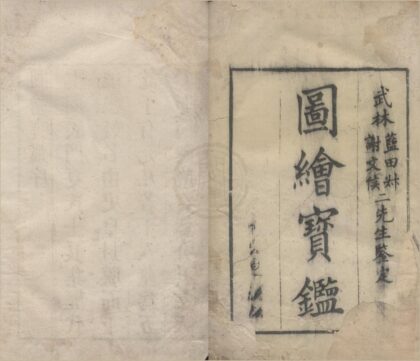 武林藍田叔謝文侯二先生鑒定
圖繪寶鑑